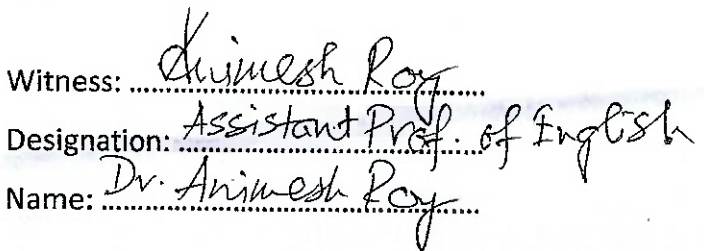 Witness: Animesh Roy
Designation: Assistant Prof. of English
Name: Dr. Animesh Roy